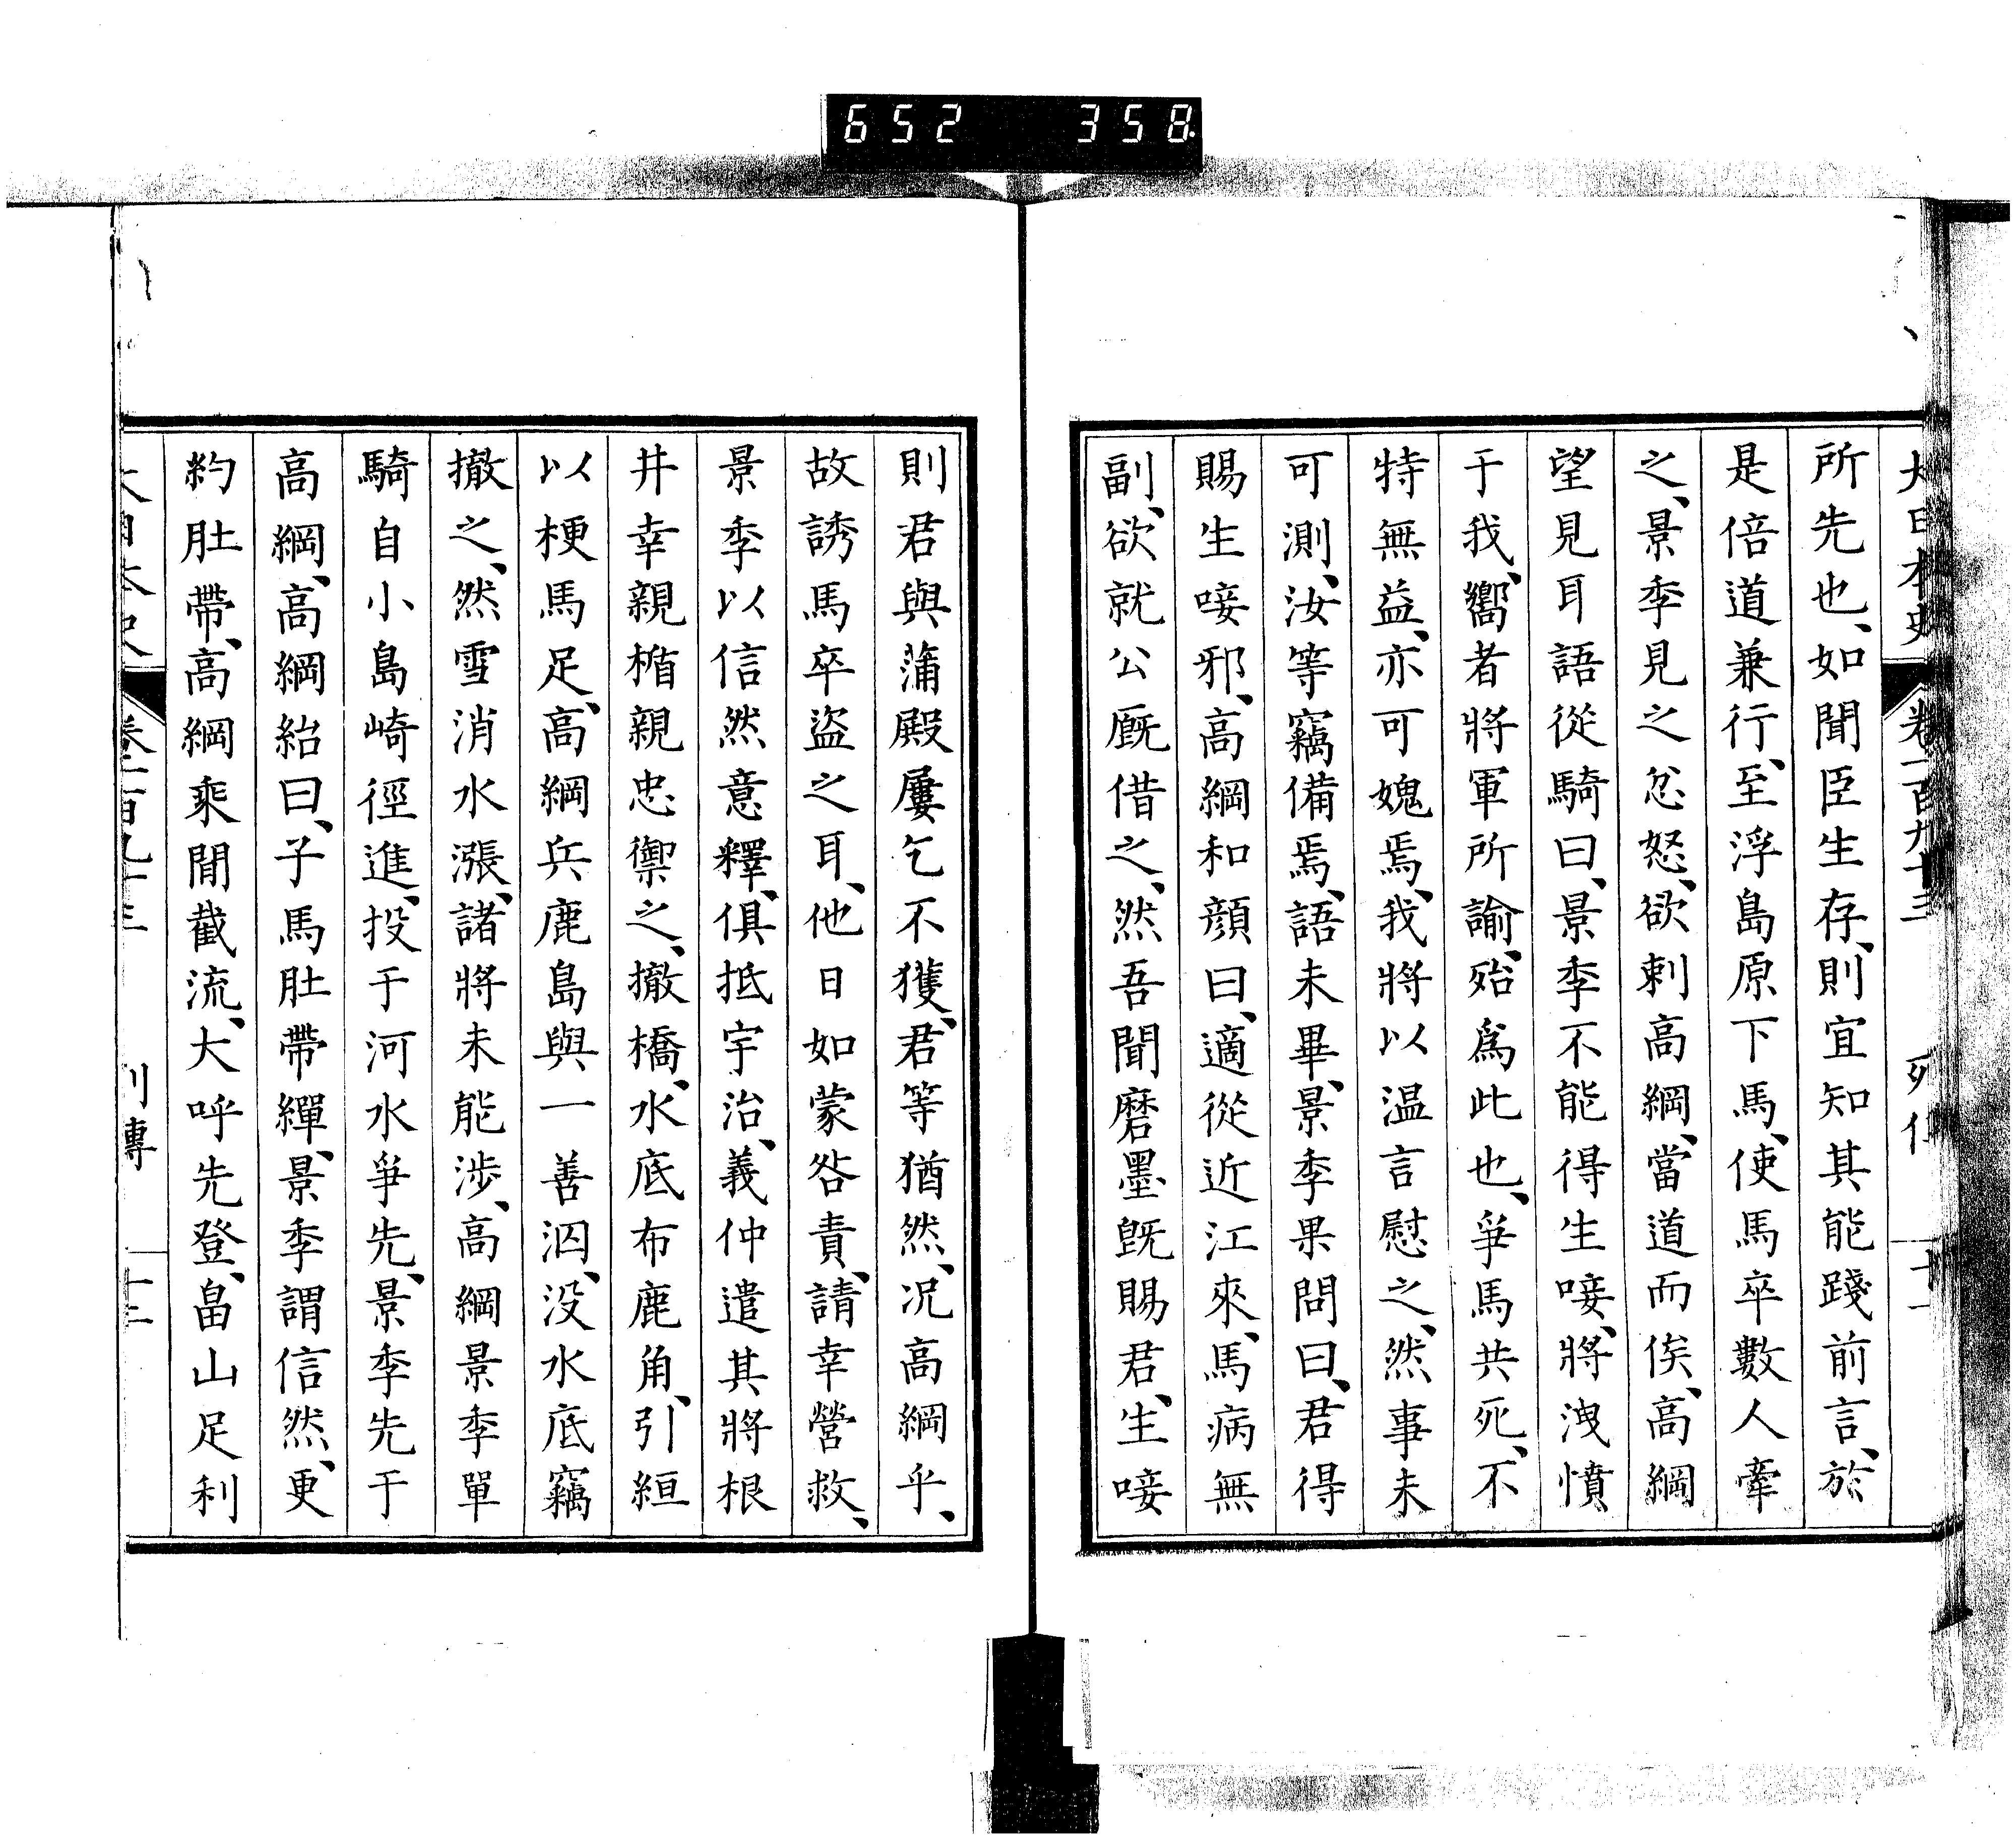 652 358
大日本史 卷二百九十三 列傳 十一
所先也、如聞臣生存、則宜知其能踐前言、於
是倍道兼行、至浮島原下馬、使馬卒數人牽
之、景季見之忿怒、欲刺高綱、當道而俟、高綱
望見耳語從騎曰、景季不能得生唼、將洩憤
于我、嚮者將軍所諭、殆爲此也、爭馬共死、不
特無益、亦可媿焉、我將以温言慰之、然事未
可測、汝等竊備焉、語未畢、景季果問曰、君得
賜生唼邪、高綱和顔曰、適從近江來、馬病無
副、欲就公厩借之、然吾聞磨墨既賜君、生唼
則君與蒲殿屢乞不獲、君等猶然、况高綱乎、
故誘馬卒盜之耳、他日如蒙咎責、請幸營救、
景季以信然意釋、俱抵宇治、義仲遣其將根
井幸親楯親忠禦之、撤橋、水底布鹿角、引絙
以梗馬足、高綱兵鹿島與一善泅、没水底竊
撤之、然雪消水漲、諸將未能渉、高綱景季單
騎自小島崎徑進、投于河水爭先、景季先于
高綱、高綱紿曰、子馬肚帶繟、景季謂信然、更
約肚帶、高綱乘間截流、大呼先登、畠山足利
大日本史 卷二百九十三 列傳 十二